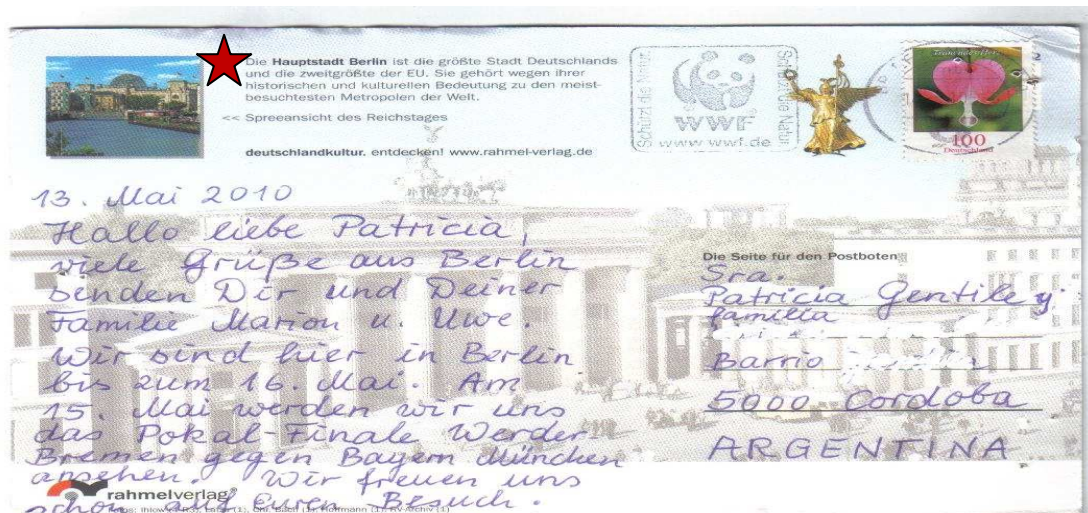 Die Hauptstadt Berlin ist die größte Stadt Deutschlands
und die zweitgrößte der EU. Sie gehört wegen ihrer
historischen und kulturellen Bedeutung zu den meist-
besuchtesten Metropolen der Welt.
<< Spreeansicht des Reichstages
deutschlandkultur. entdecken! www.rahmel-verlag.de
Schützt die Natur
WWF
www wwf.de
Schützt die Natur
100
Deutschland
13. Mai 2010
Hallo liebe Patricia,
viele Grüße aus Berlin
senden Dir und Deiner
Familie Marion u. Uwe.
Wir sind hier in Berlin
bis zum 16. Mai. Am
15. Mai werden wir uns
das Pokal-Finale Werder-
Bremen gegen Bayern München
ansehen. Wir freuen uns
schon auf Euren Besuch.
rahmelverlag
Die Seite für den Postboten
Sra.
Patricia Gentile y
familia
Barrio
5000 Cordoba
ARGENTINA